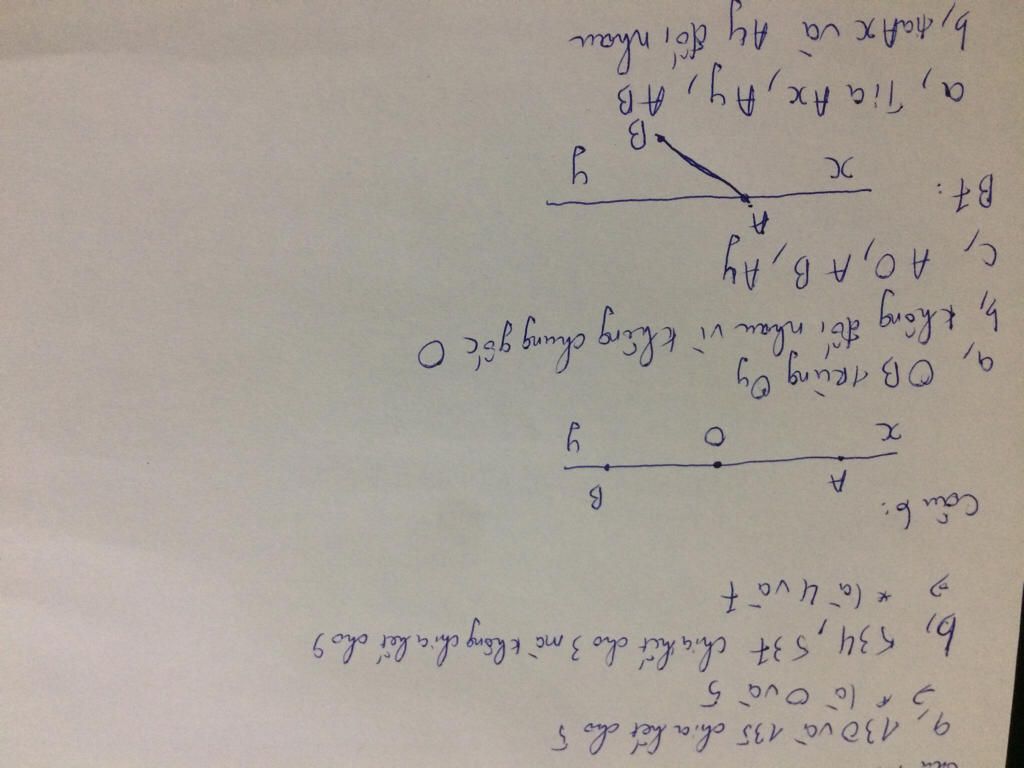 a, 130 và 135 chia hết cho 5
⇒ * là 0 và 5
b, 534, 537 chia hết cho 3 mà không chia hết cho 9
⇒ * là 4 và 7
Câu 6:
A B
x O y
a, OB trùng Oy
b, không đối nhau vì không chung gốc O
c, AO, AB, Ay
B7:
A
x y
B
a, Tia Ax, Ay, AB
b, tia Ax và Ay đối nhau